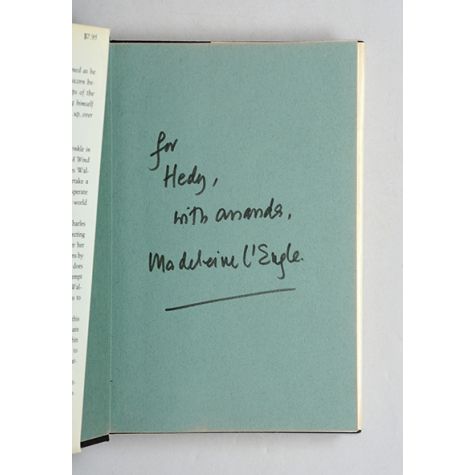 $7.95
med as he
icorn be-
ps of the
g himself
up, over
nkle in
Wind
s Wal-
rtake a
sperate
world
Charles
ecting
her
en by
does
empt
Wal-
s to
this
are
hin
to
for
Hedy,
with ananda,
Madeleine L'Engle.